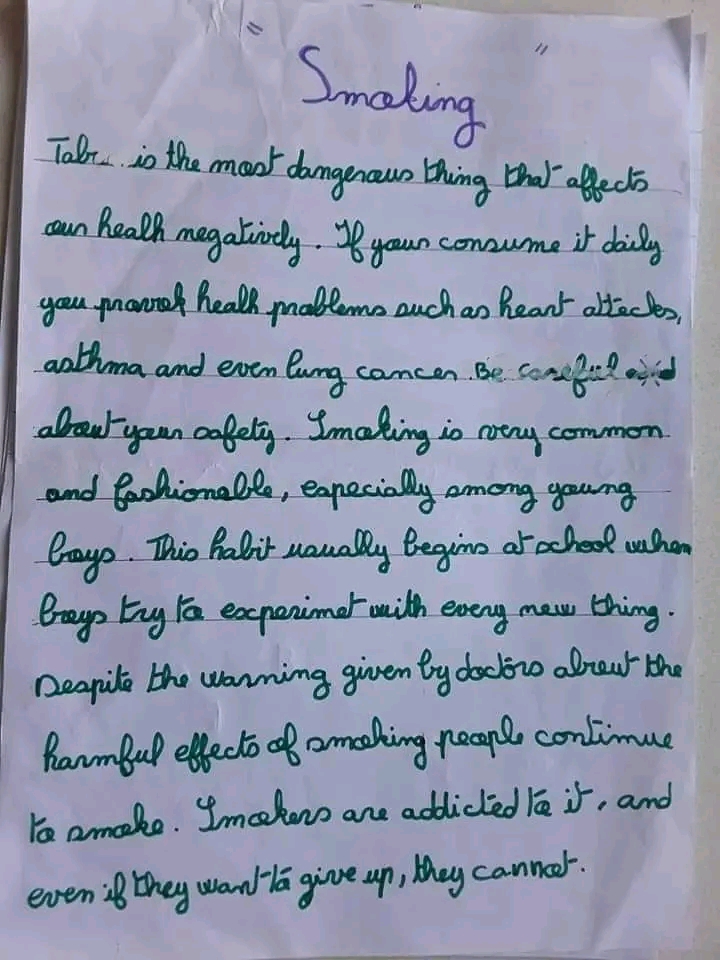 " Smoking "
Tab... is the most dangerous thing that affects
our healh negatively. If your consume it daily
you provok healh problems such as heart attecks,
asthma and even lung cancer. Be careful
about your safety. Smoking is very common
and fashionable, especially among young
boys. This habit usually begins at school when
boys try to experimet with every new thing.
Despite the warning given by doctors about the
harmful effects of smoking people continue
to smoke. Smokers are addicted to it, and
even if they want to give up, they cannot.